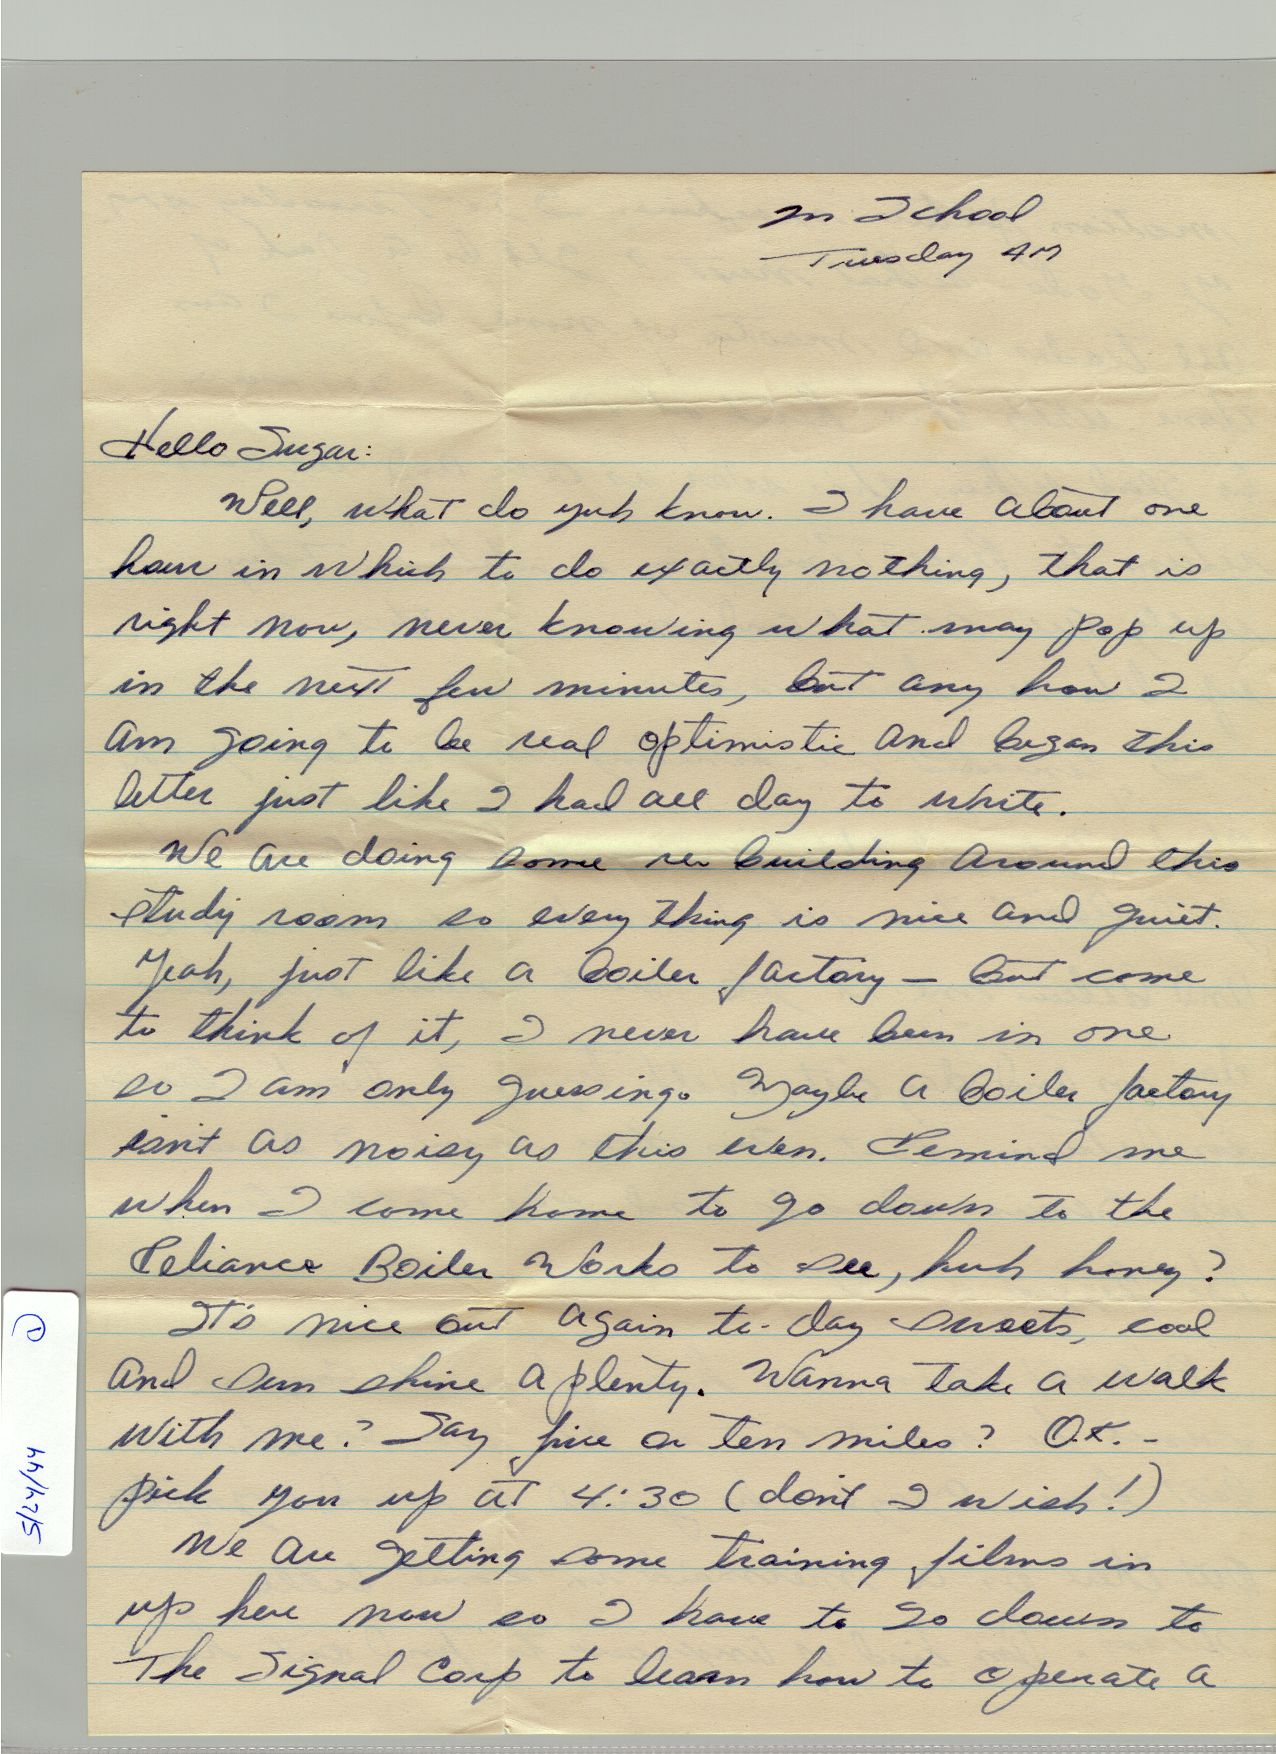 In School
Tuesday AM
Hello Sugar:
Well, what do yuh know. I have about one
hour in which to do exactly nothing, that is
right now, never knowing what may pop up
in the next few minutes, but any how I
am going to be real optimistic and began this
letter just like I had all day to write.
We are doing some re building around this
study room so every thing is nice and quiet.
Yeah, just like a boiler factory – but come
to think of it, I never have been in one
so I am only guessing. Maybe a boiler factory
isn't as noisy as this even. Remind me
when I come home to go down to the
Reliance Boiler Works to see, huh honey?
It's nice out again to-day sweets, cool
and sun shine a plenty. Wanna take a walk
with me? Say five or ten miles? O.K. –
pick you up at 4:30 (don't I wish!)
We are getting some training films in
up here now so I have to go down to
The Signal Corp to learn how to operate a
5/24/44 ①